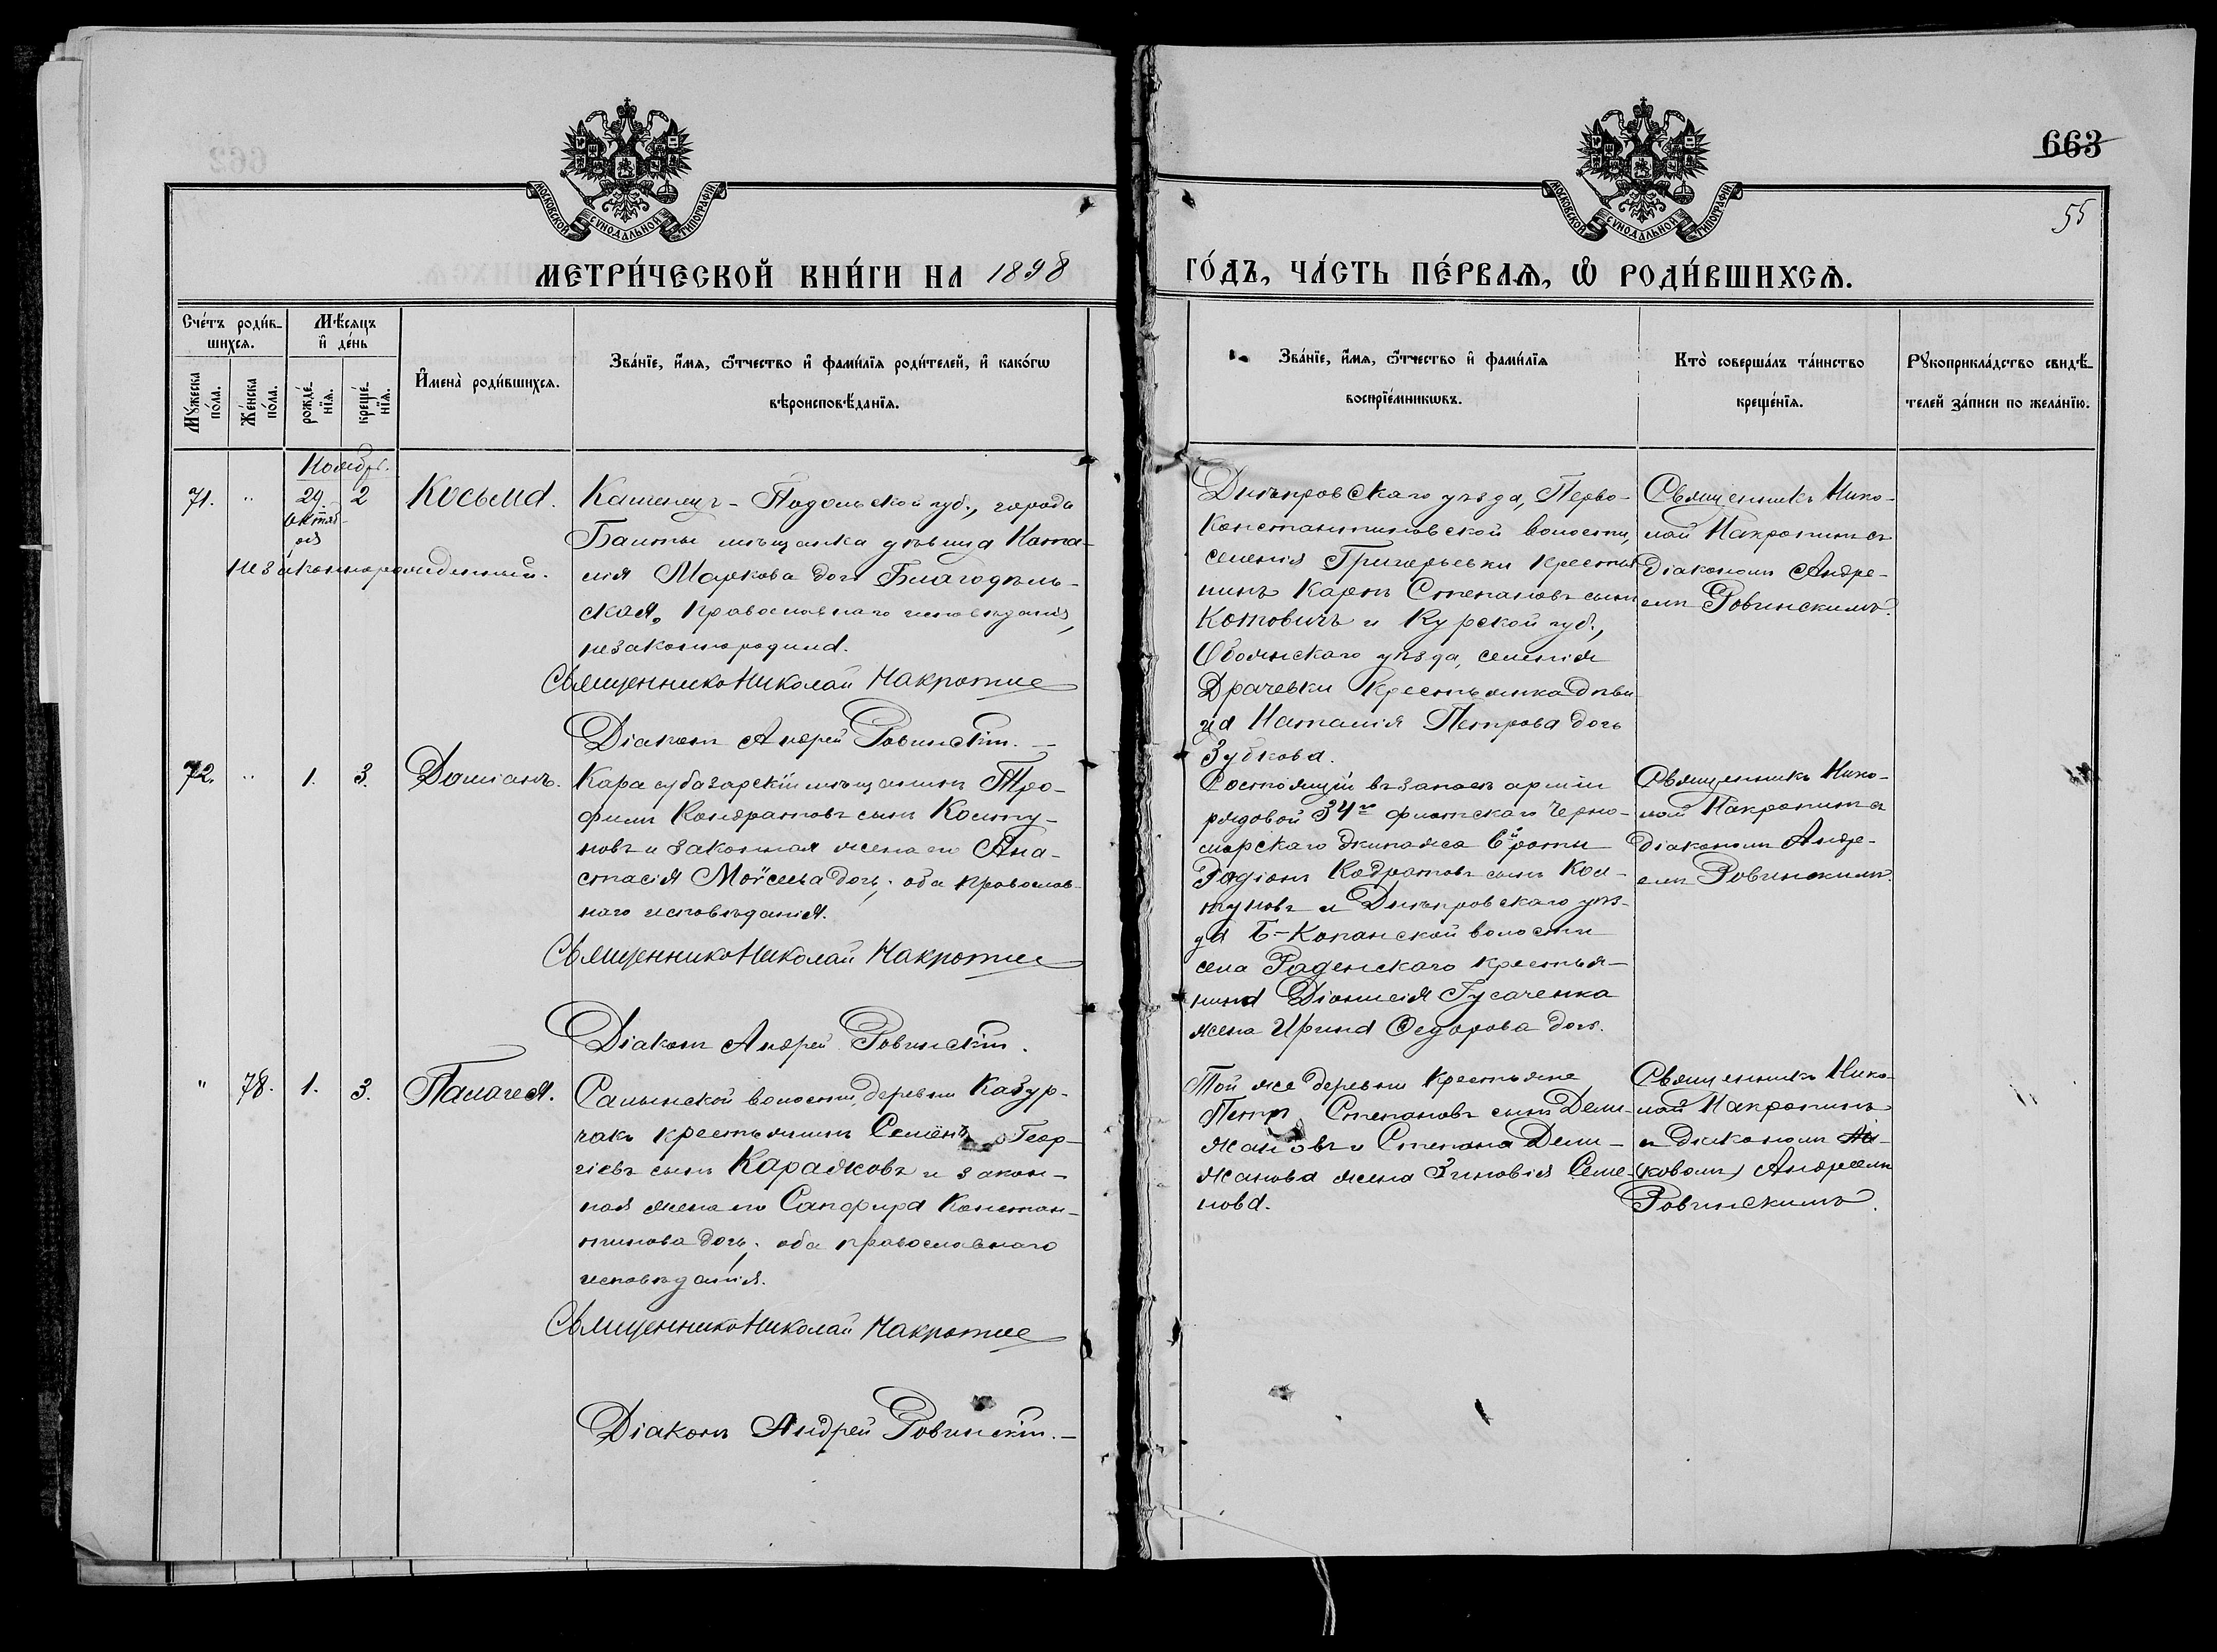 663
55
МОСКОВСКОЙ СѴНОДАЛЬНОЙ ТИПОГРАФІИ
МОСКОВСКОЙ СѴНОДАЛЬНОЙ ТИПОГРАФІИ
МЕТРИ́ЧЕСКОЙ КНИ́ГИ НА 1898
ГО́ДЪ, ЧА́СТЬ ПЕ́РВАѦ, Ѡ҆ РОДИ́ВШИХСѦ.
Счётъ роди́в-
шихсѧ.
Мꙋ́жеска
по́ла.
Же́нска
по́ла.
Мѣ́сѧцъ
и҆ де́нь
рожде́-
нїѧ.
креще́-
нїѧ.
И҆мена̀ роди́вшихсѧ.
Зва́нїе, и҆́мѧ, ѻ҆́тчество и҆ фами́лїѧ роди́телей, и҆ како́гѡ
вѣроисповѣ́данїѧ.
Зва́нїе, и҆́мѧ, ѻ҆́тчество и҆ фами́лїѧ
воспрїе́мникѡвъ.
Кто̀ соверша́лъ та́инство
креще́нїѧ.
Рꙋкоприкла́дство свидѣ́-
телей за́писи по жела́нїю.
Ноябрь.
71. „ 29 2 Косьма.
октяб-
ря
незаконнорожденный.
Каменецъ-Подольской губ., города
Балты мѣщанка дѣвица Ната-
лія Маркова дочь Благодѣль-
ская, православнаго исповѣданія,
незаконнородила.
Священникъ Николай Макротинъ
Діаконъ Андрей Ровинскій.
Днѣпровскаго уѣзда, Перво-
Константиновской волости,
селенія Григорьевки крестья
нинъ Карпъ Степановъ сынъ
Котовичъ и Курской губ.,
Обоянскаго уѣзда, селенія
Драчевки крестьянка дѣви
ца Наталія Петрова дочь
Зубкова.
Священникъ Нико-
лай Макротинъ съ
діакономъ Андре-
емъ Ровинскимъ.
72. „ 1. 3. Доміанъ.
Карасубазарскій мѣщанинъ Тро-
фимъ Кондратовъ сынъ Колту-
новъ и законная жена его Ана-
стасія Моѵсеева дочь; оба православ-
наго исповѣданія.
Священникъ Николай Макротинъ
Діаконъ Андрей Ровинскій.
Состоящій въ запасѣ арміи
рядовой 34го флотскаго Черно-
морскаго Экипажа 6й роты
Радіонъ Кодратовъ сынъ Кол-
туновъ и Днѣпровскаго уѣз-
да Б-Копанской волости
села Раденскаго крестья-
нина Діонисія Гусаченка
жена Ирина Ѳедорова дочь.
Священникъ Нико-
лай Макротинъ съ
діакономъ Андре-
емъ Ровинскимъ.
„ 78. 1. 3. Палагея.
Салынской волости, деревни Казур-
чакъ крестьянинъ Семёнъ Геор-
гіевъ сынъ Каражовъ и закон-
ная жена его Сапфира Констан-
тинова дочь; оба православнаго
исповѣданія.
Священникъ Николай Макротинъ
Діаконъ Андрей Ровинскій.
Той же деревни крестьяне
Петръ Степановъ сынъ Дели-
жановъ и Степана Дели-
жанова жена Зиновія Семе-
нова.
Священникъ Нико-
лай Макротинъ
и діакономъ
Андреемъ
Ровинскимъ.